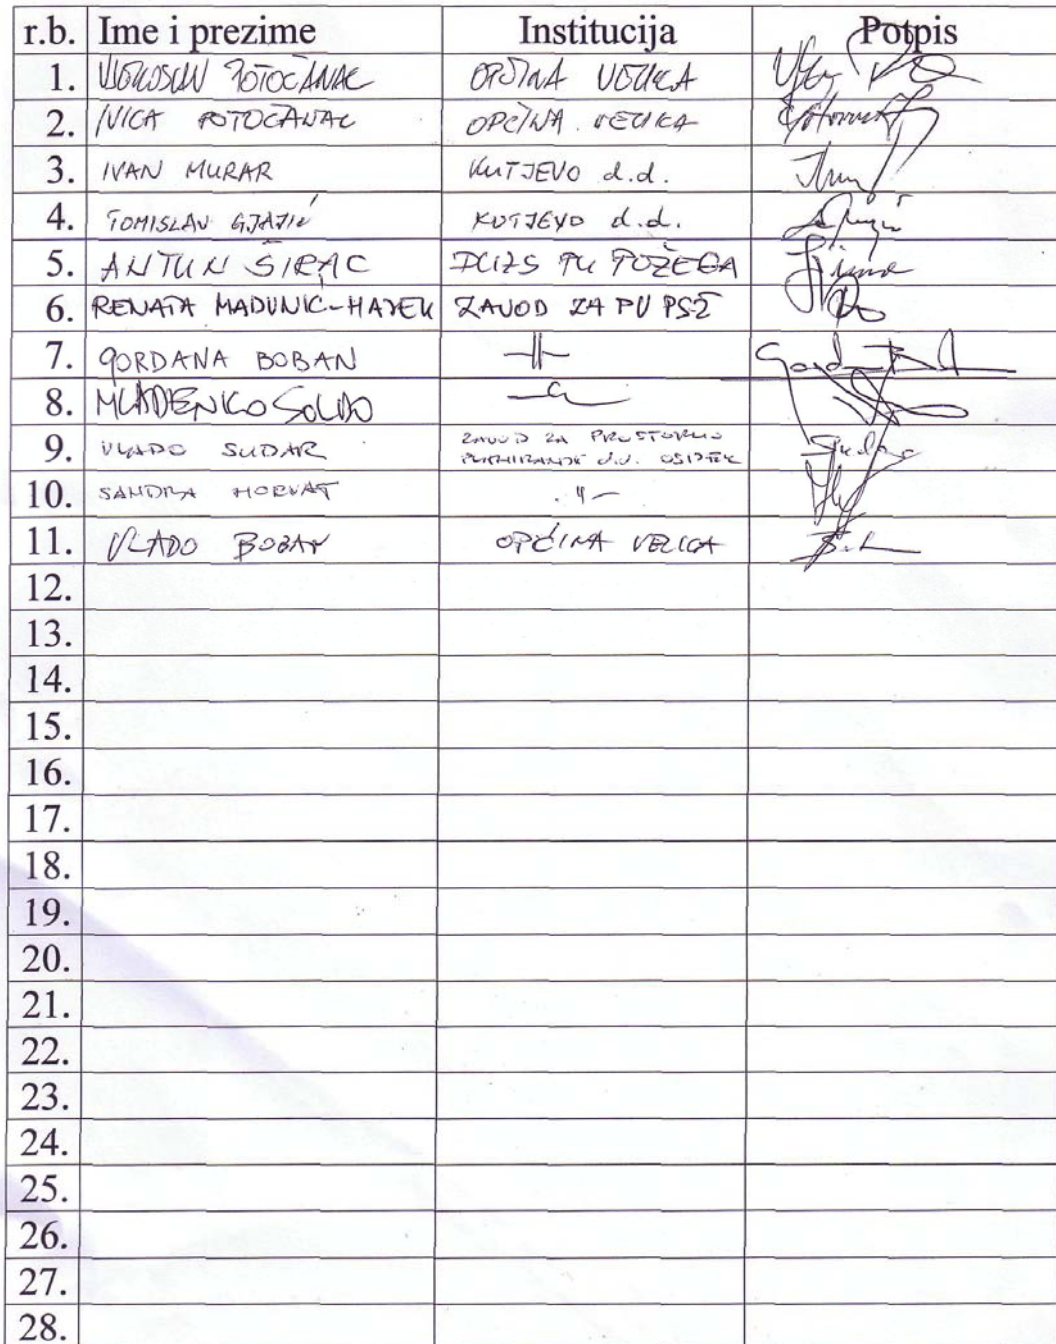 r.b. Ime i prezime Institucija Potpis
1. VJEKOSLAV POTOČANAC OPĆINA VELIKA
2. IVICA POTOČANAC OPĆINA VELIKA
3. IVAN MURAR KUTJEVO d.d.
4. TOMISLAV KUTJEVO d.d.
5. ANTUN ŠIRAC DUZS PU POŽEGA
6. RENATA MADUNIĆ-HAJEK ZAVOD ZA PU PSŽ
7. GORDANA BOBAN -||-
8. MLADENKO SOLDO
9. VLADO SUDAR ZAVOD ZA PROSTORNO
PLANIRANJE d.d. OSIJEK
10. SANDRA HORVAT -"-
11. VLADO BOBAN OPĆINA VELIKA
12.
13.
14.
15.
16.
17.
18.
19.
20.
21.
22.
23.
24.
25.
26.
27.
28.